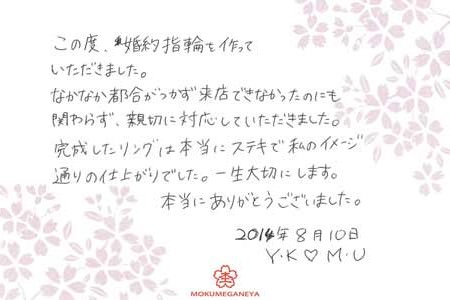 この度、婚約指輪を作って
いただきました。
なかなか都合がつかず来店できなかったのにも
関わらず、親切に対応していただきました。
完成したリングは本当にステキで私のイメージ
通りの仕上がりでした。一生大切にします。
本当にありがとうございました。
2014年8月10日
Y・K♡M・U
MOKUMEGANEYA